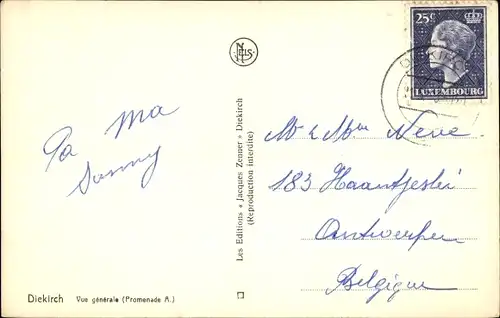 25c
LUXEMBOURG
NELS
Pa Ma
Sonny
Les Editions « Jacques Zenner » Diekirch
(Reproduction interdite)
Mr & Mme Neve
183 Haantjeslei
Antwerpen
Belgique
Diekirch Vue générale (Promenade A.)